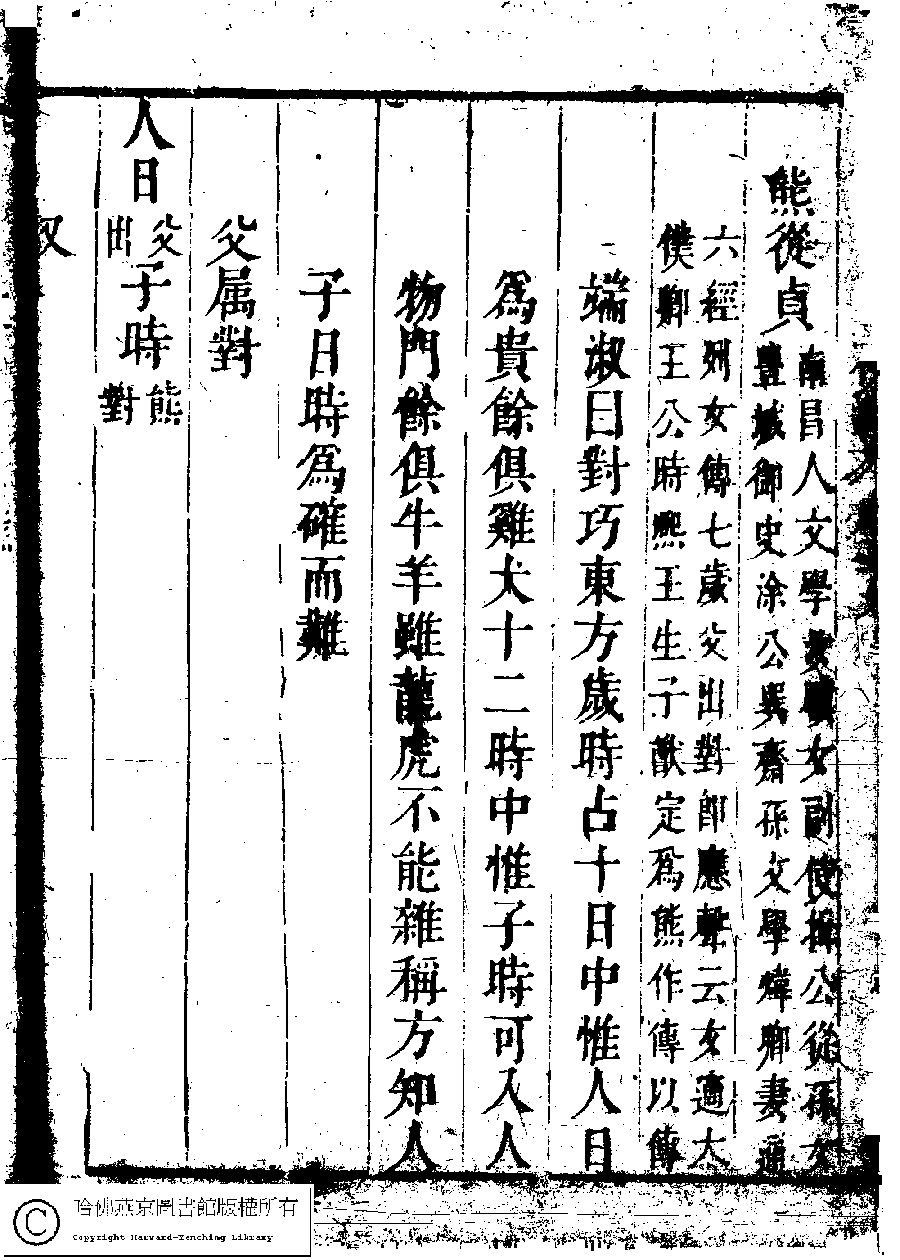 熊從貞
南昌人文學女副使公從孫女
豐城御史涂公與齋孫文學煒卿妻通
六經列女傳七歲父出對即應聲云女適大
僕卿王公時熙王生子猷定為熊作傳以傳
端淑曰對巧東方歲時占十日中惟人日
為貴餘俱雞犬十二時中惟子時可入人
物門餘俱牛羊雖龍虎不能雜稱方知人
子日時為確而難
父属對
人日父出子時熊對
哈佛燕京圖書館版權所有
Copyright Harvard-Yenching Library